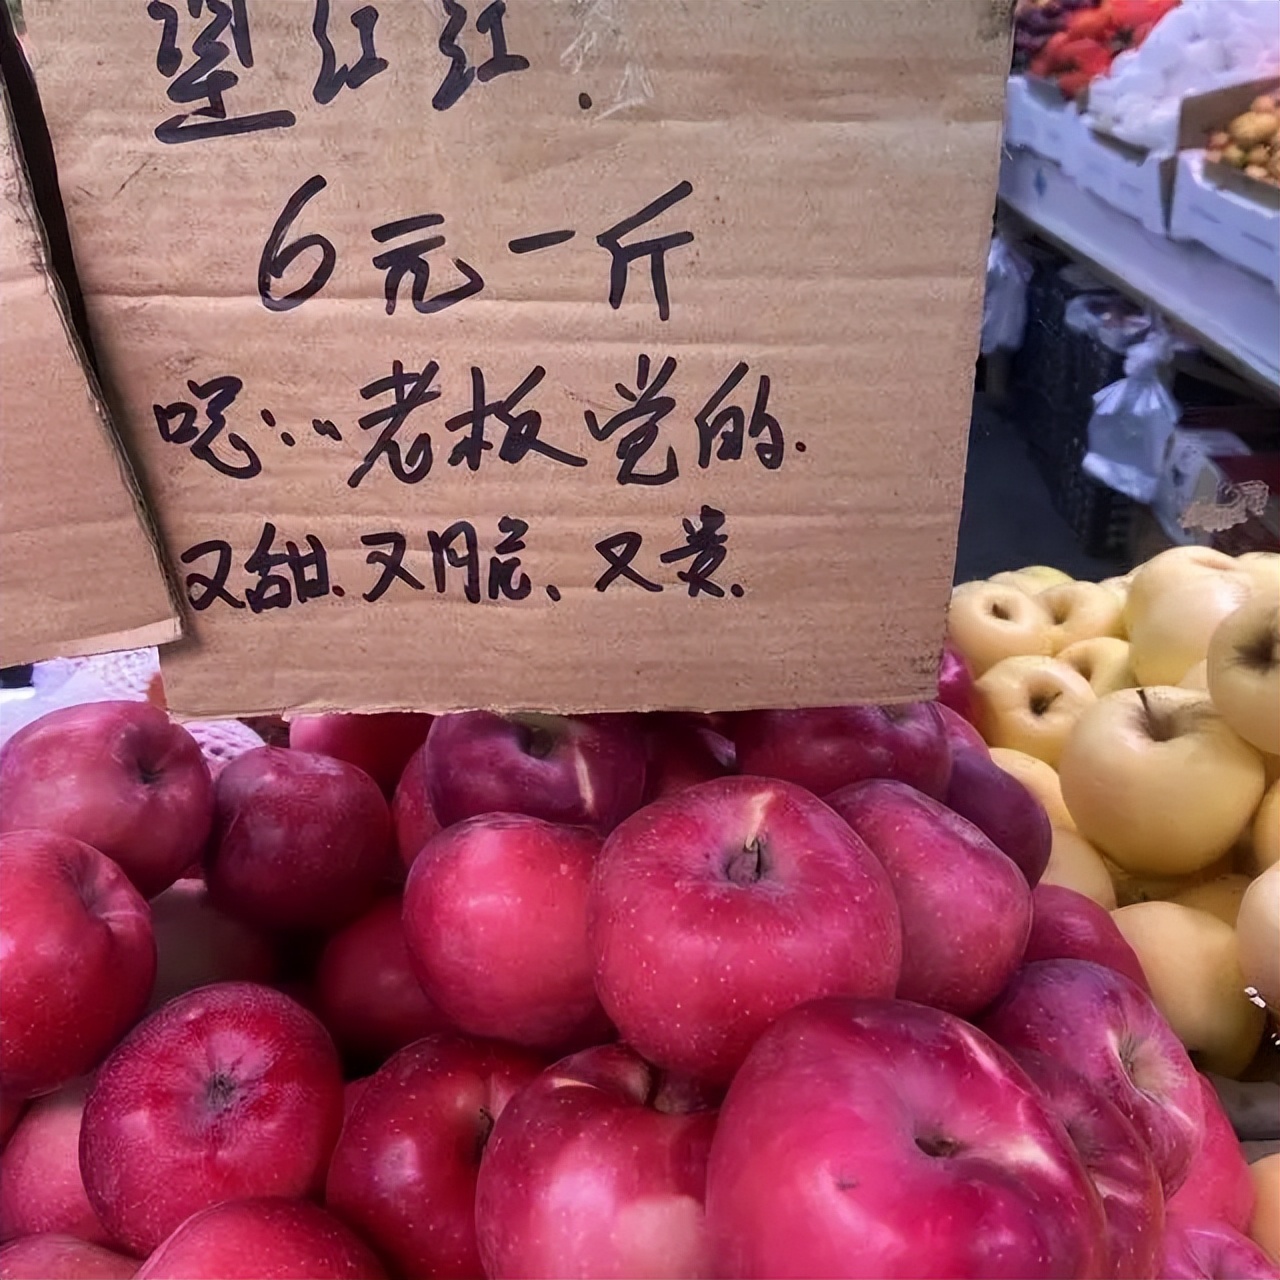 堡红红.
6元一斤
呃:··老板觉的.
又甜.又脆、又贵.